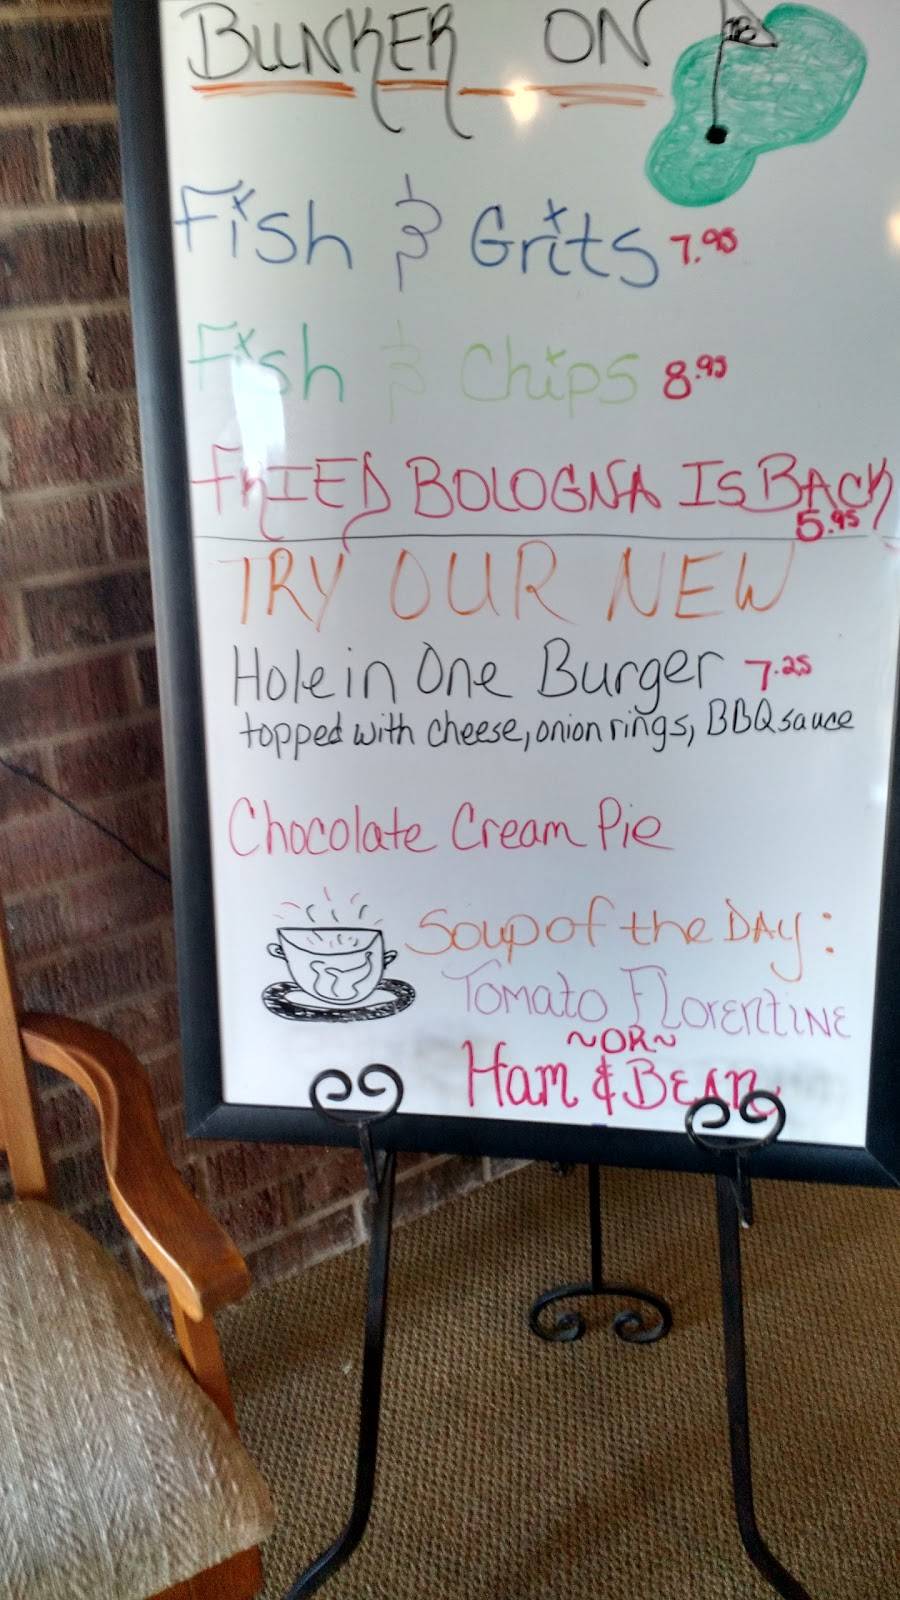 BUNKER ON 18
Fish & Grits 7.95
Fish & Chips 8.95
FRIED BOLOGNA IS BACK
5.95
TRY OUR NEW
Hole in One Burger 7.25
topped with cheese, onion rings, BBQ sauce
Chocolate Cream Pie
Soup of the DAY:
Tomato Florentine
~OR~
Ham & BEAN